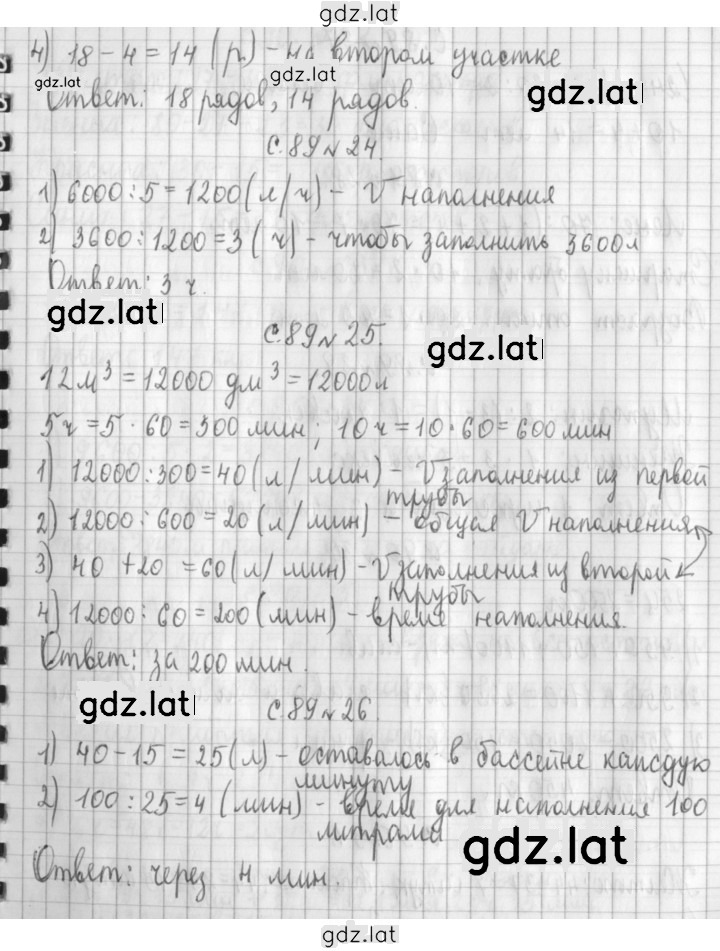 gdz.lat
4) 18 - 4 = 14 (р.) - на втором участке
gdz.lat
gdz.lat
Ответ: 18 рядов, 14 рядов.
gdz.lat
с.89 № 24.
1) 6000 : 5 = 1200 (л/ч) - V наполнения
2) 3600 : 1200 = 3 (ч) - чтобы заполнить 3600л
Ответ: 3 ч.
gdz.lat
с.89 № 25.
gdz.lat
12м³ = 12000 дм³ = 12000л
5ч = 5 · 60 = 300 мин; 10ч = 10 · 60 = 600 мин
1) 12000 : 300 = 40 (л/мин) - V заполнения из первой
трубы
2) 12000 : 600 = 20 (л/мин) - общая V наполнения
3) 40 + 20 = 60 (л/мин) - V заполнения из второй
трубы
4) 12000 : 60 = 200 (мин) - время наполнения.
Ответ: за 200 мин.
gdz.lat
с.89 № 26.
1) 40 - 15 = 25 (л) - оставалось в бассейне каждую
минуту
2) 100 : 25 = 4 (мин) - время для наполнения 100
литрами
gdz.lat
Ответ: через 4 мин.
gdz.lat